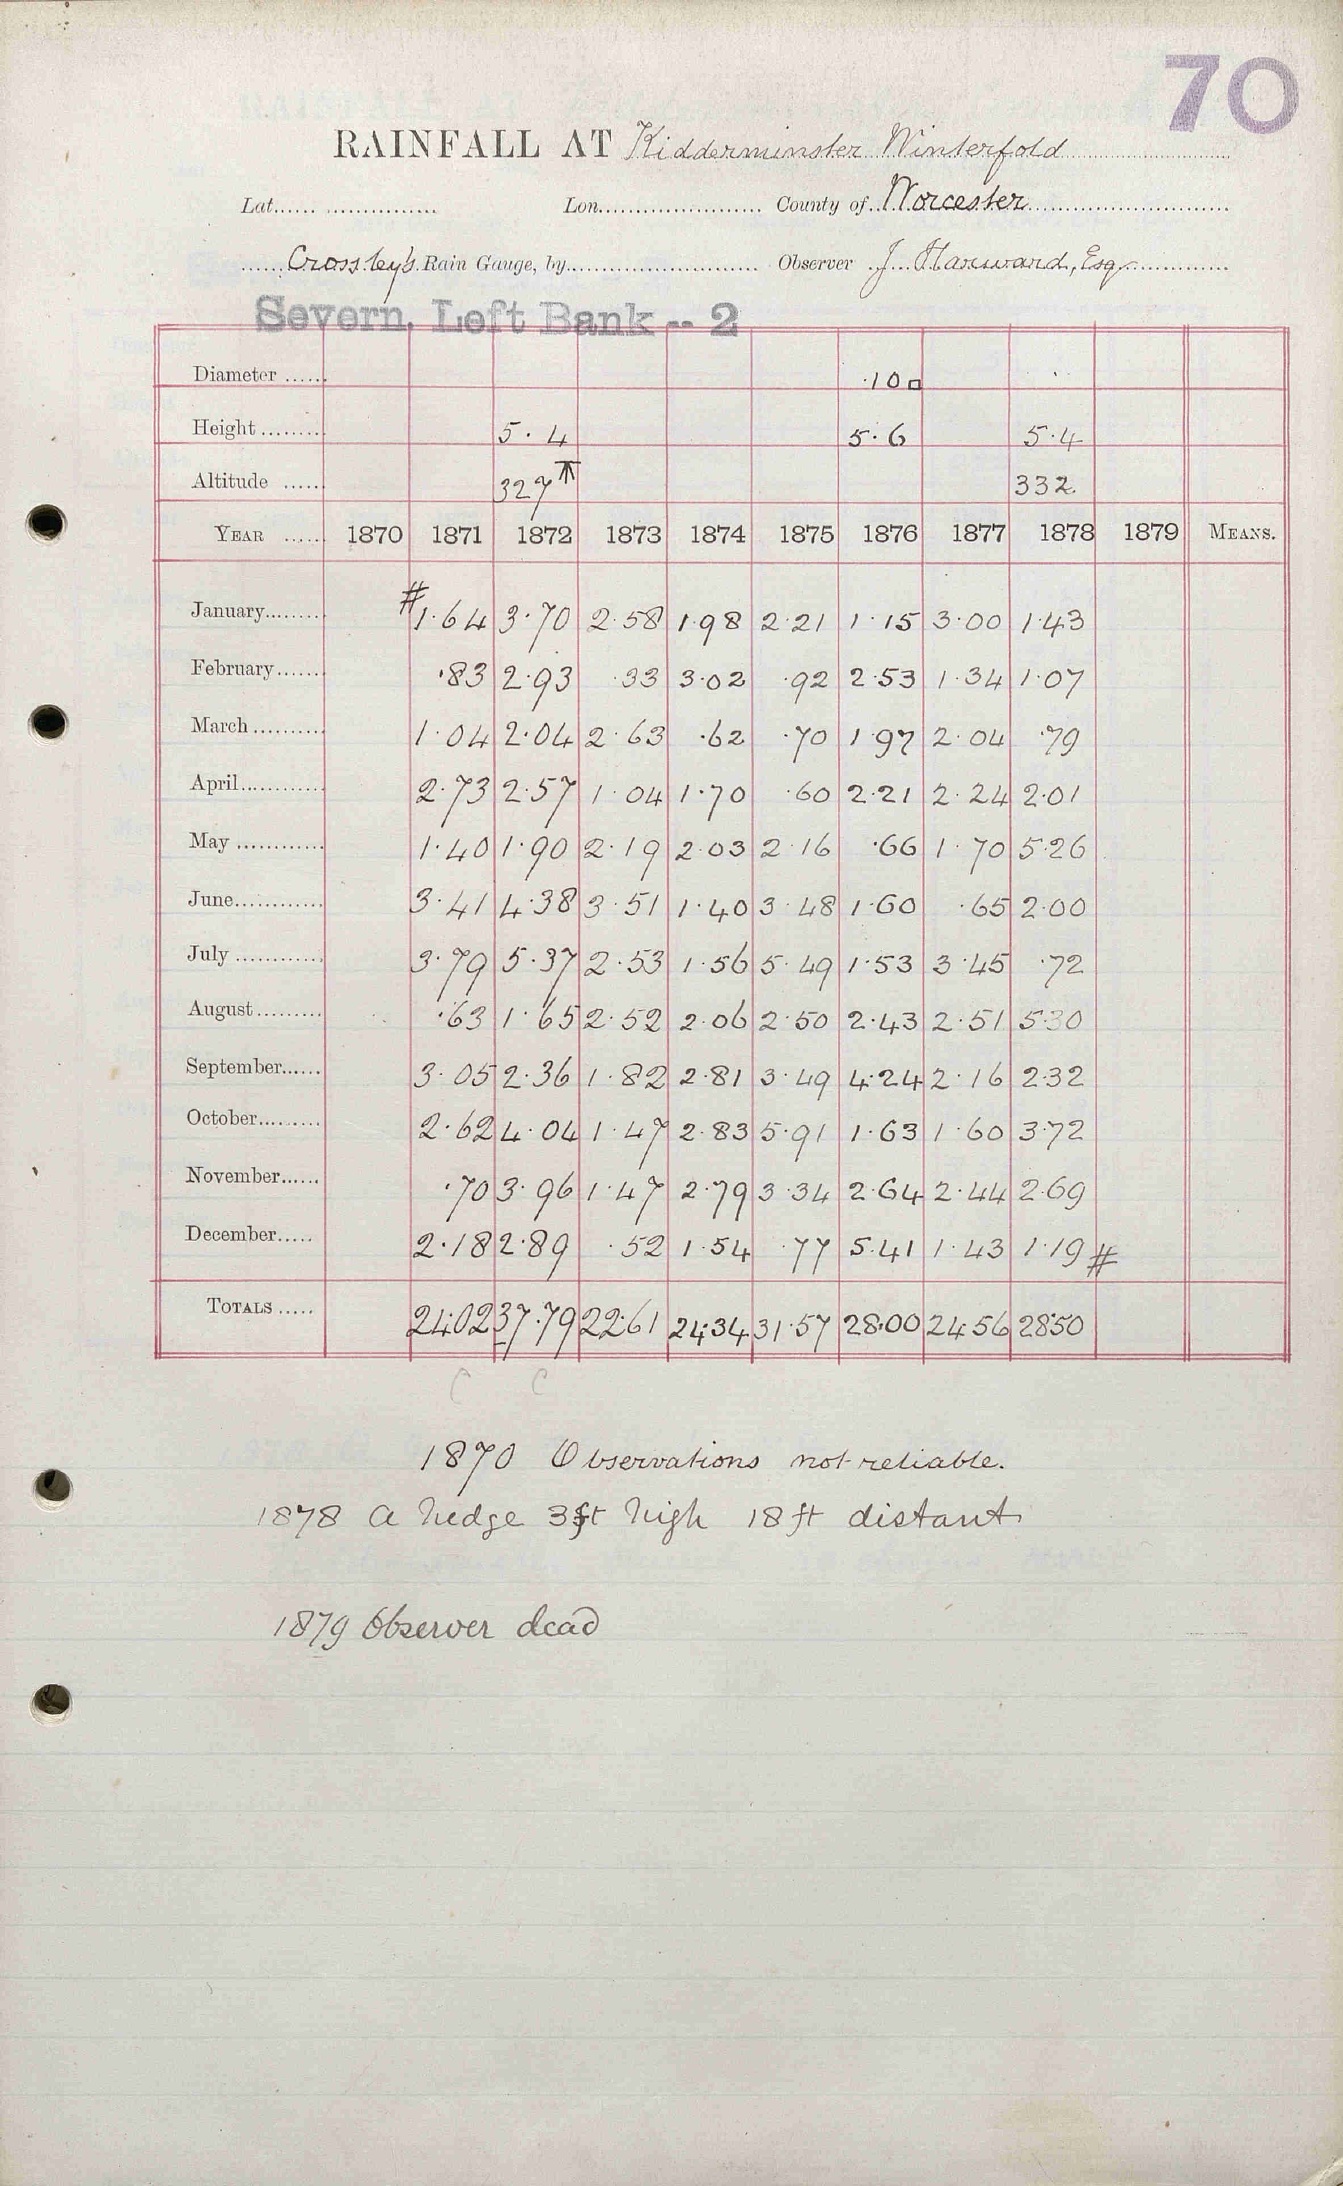 70
RAINFALL AT Kidderminster Winterfold
Lat. Lon. County of Worcester
Crossley's Rain Gauge, by Observer J. Harward, Esq
Severn, Left Bank -- 2
Diameter ·10□
Height 5·4 5·6 5·4
Altitude 327 ⊼ 332
YEAR 1870 1871 1872 1873 1874 1875 1876 1877 1878 1879 MEANS.
January # 1·64 3·70 2·58 1·98 2·21 1·15 3·00 1·43
February ·83 2·93 ·33 3·02 ·92 2·53 1·34 1·07
March 1·04 2·04 2·63 ·62 ·70 1·97 2·04 ·79
April 2·73 2·57 1·04 1·70 ·60 2·21 2·24 2·01
May 1·40 1·90 2·19 2·03 2·16 ·66 1·70 5·26
June 3·41 4·38 3·51 1·40 3·48 1·60 ·65 2·00
July 3·79 5·37 2·53 1·56 5·49 1·53 3·45 ·72
August ·63 1·65 2·52 2·06 2·50 2·43 2·51 5·30
September 3·05 2·36 1·82 2·81 3·49 4·24 2·16 2·32
October 2·62 4·04 1·47 2·83 5·91 1·63 1·60 3·72
November ·70 3·96 1·47 2·79 3·34 2·64 2·44 2·69
December 2·18 2·89 ·52 1·54 ·77 5·41 1·43 1·19 #
TOTALS 24·02 37·79 22·61 24·34 31·57 28·00 24·56 28·50
C C
1870 Observations not reliable.
1878 a hedge 3ft high 18 ft distant
1879 Observer dead